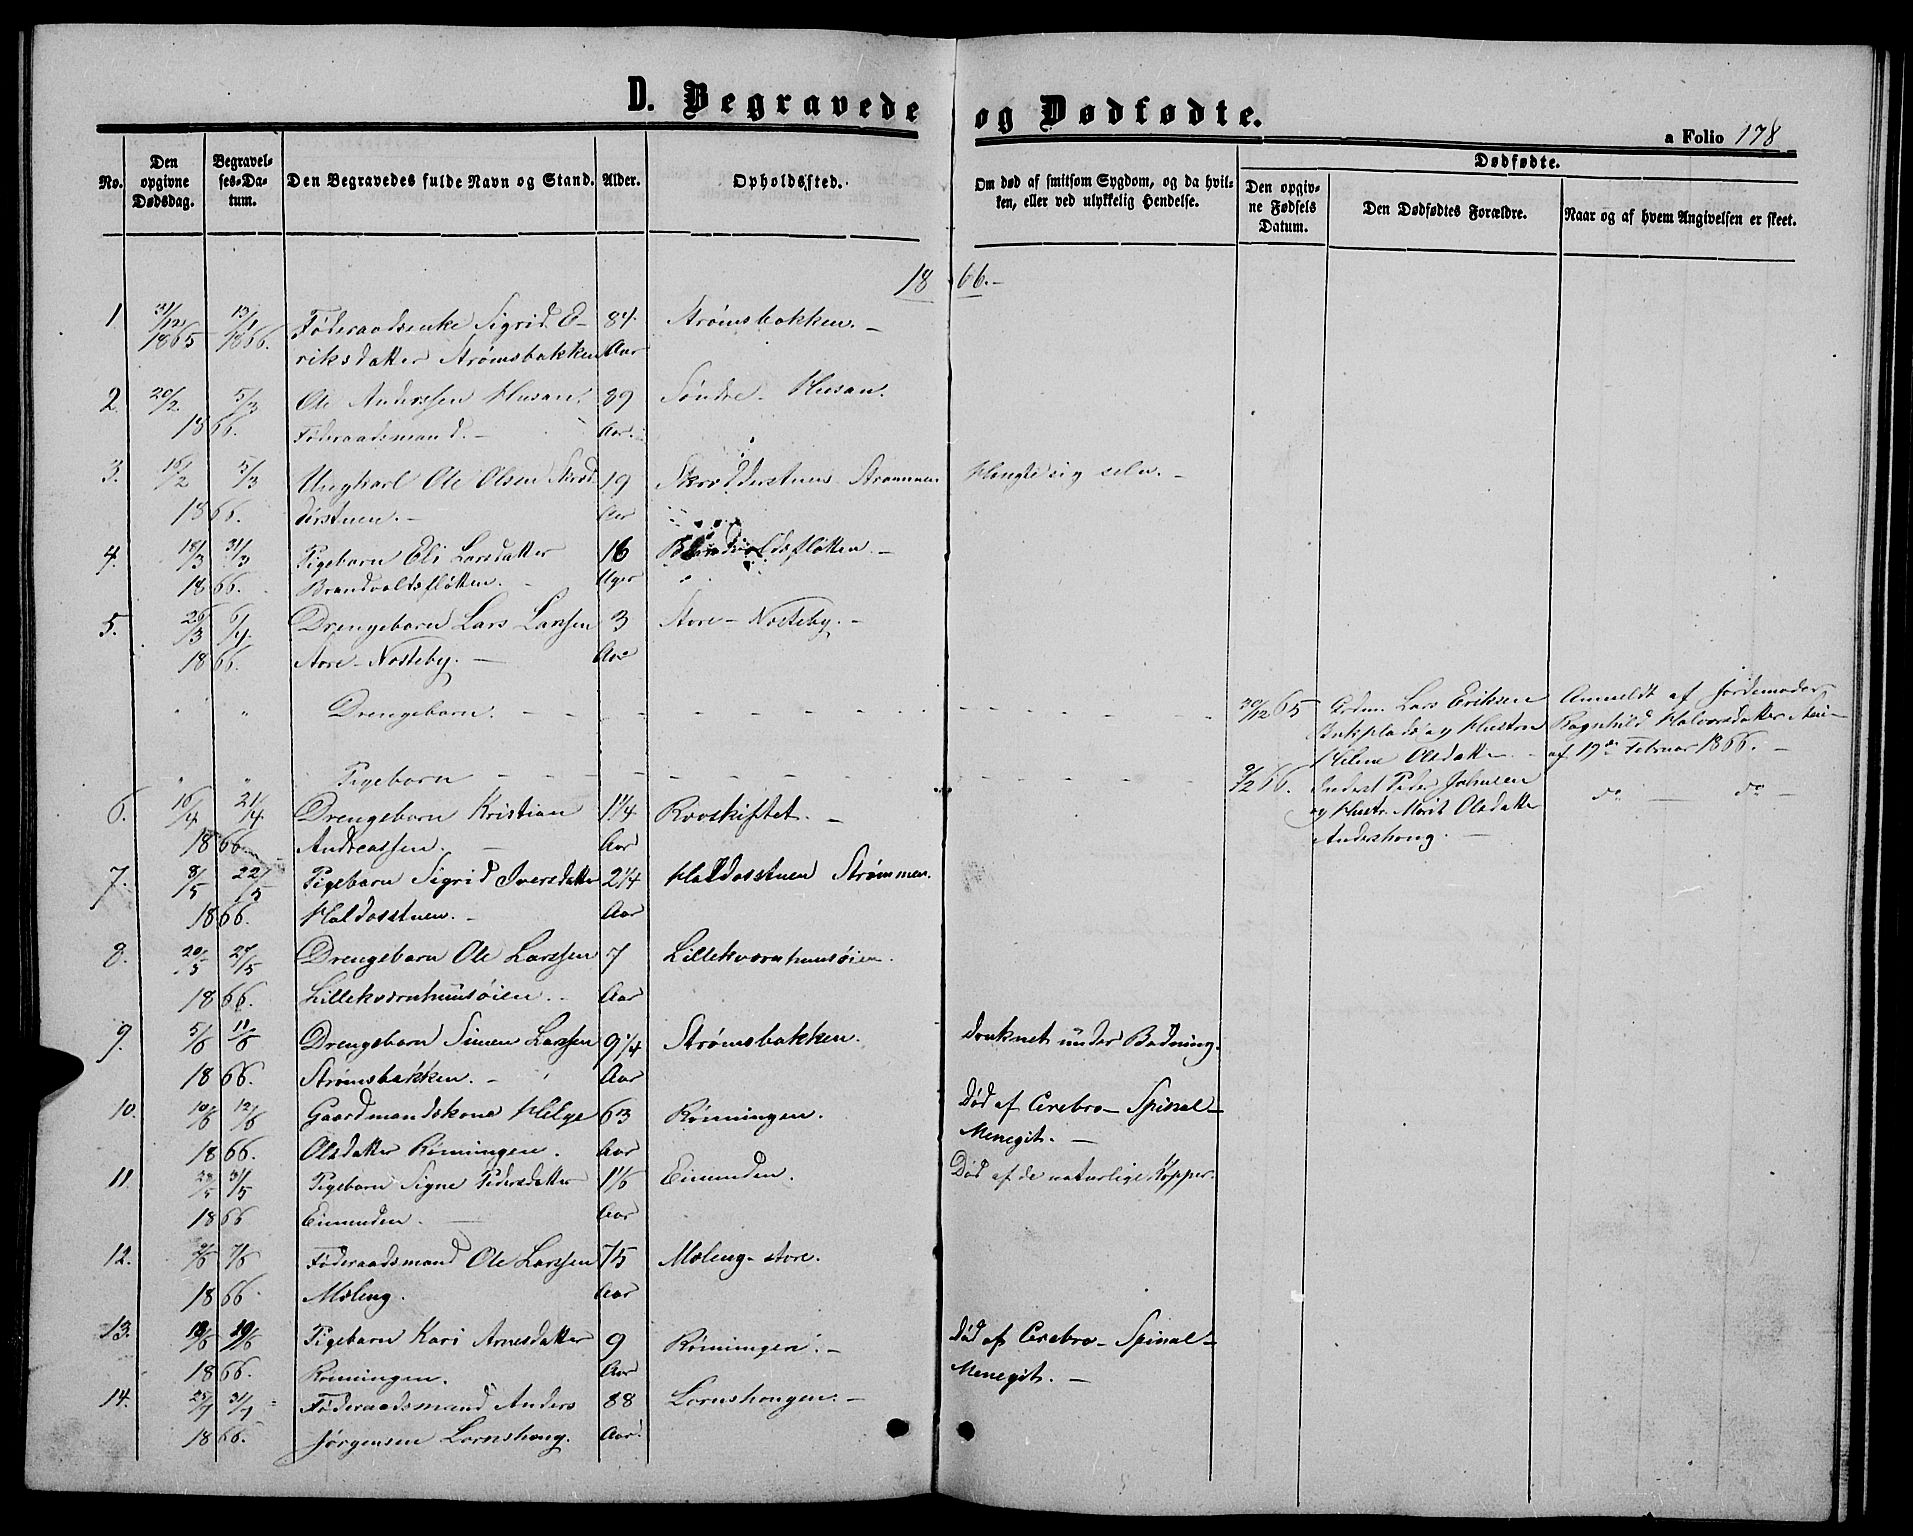 D. Begravede og Dødfødte.
a Folio 178
No.
Den opgivne Dødsdag.
Begravelses-Datum.
Den Begravedes fulde Navn og Stand.
Alder.
Opholdssted.
Om død af smitsom Sygdom, og da hvilken, eller ved ulykkelig Hendelse.
Dødfødte.
Den opgivne Fødsels Datum.
Den Dødfødtes Forældre.
Naar og af hvem Angivelsen er skeet.
1866.-
1 31/12 13/1 Føderaadsenke Sigrid E- 84 Strømsbakken. -
1865 1866. riksdatter Strømsbakken Aar
2. 20/2. 5/3 Ole Anderssen Husan. 89 Søndre Husan.
1866. Føderaadsmand. - Aar.
3. 5/3 Ungkarl Ole Olsen Skræd- 19 Strømmen Hængte sig selv. -
1866. derstuen. - Aar
4. 18/3 31/3 Pigebarn Eli Larsdatter 16 Brandvoldsfløtten -
1866. Brandvoldsfløtten. Uger
5. 26/3 6/4. Drengebarn Lars Larssen 3 Store-Nosteby. -
1866. Store-Nosteby. - Aar
" " Drengebarn. - - - 30/12 65 Lars Eriksen Anmeldt af Jordemoder
og Hustru Ragnhild Halvorsdatter
Helene Olsdatter - af 19de Februar 1866. -
" " Pigebarn - - - 9/2 66. Peder Johnsen do - do -
og Hustr. Marit Olsdatter
Andershoug. -
6. 16/4 21/4. Drengebarn Kristian 1 1/4 Rooskiftet. -
1866 Andreassen. - Aar
7. 8/5 22/5 Pigebarn Sigrid Iversdatter 2 1/4 Haldosstuen Strømmen.
1866. Haldosstuen. - Aar
8. 20/5 27/5 Drengebarn Ole Larssen 7 Lillekværnhuusøien.
1866. Lillekværnhuusøien. - Aar
9. 5/6 11/6 Drengebarn Simen Larssen 9 1/4 Strømsbakken. Druknet under Badning.
1866. Strømsbakken. - Aar
10. 10/6 12/6 Gaardmandskone Helge 63 Rønningen. Død af Cerebro- Spinal-
1866. Olsdatter Rønningen. Aar Menegit. -
11. 31/5 Pigebarn Signe Pedersdatter 1 1/6 Eimunden. Død af de naturlige Kopper.
1866 Eimunden. - Aar
12. 7/6 Føderaadsmand Ole Larssen 75 Mæleng-store.
1866. Mæleng. Aar
13. 19/6 Pigebarn Kari Arnesdatter 9 Rønningen. - Død af Cerebro- Spinal-
1866. Rønningen. Aar Menegit. -
14. 25/7 31/7 Føderaadsmand Anders 88 Lornshougen. -
1866. Jørgensen Lornshoug. Aar